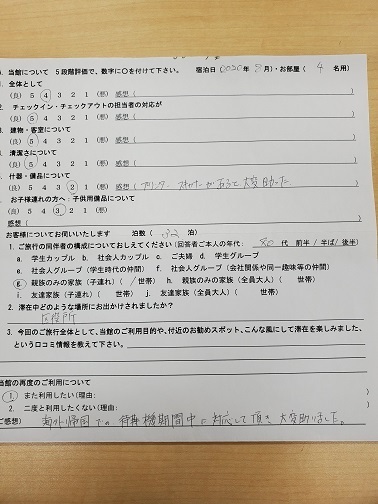 . 当館について 5段階評価で、数字に〇を付けて下さい。 宿泊日 2020年 9月)・お部屋( 4 名用)
1. 全体として
(良) 5 4 3 2 1 (悪) 感想 ( )
2. チェックイン・チェックアウトの担当者の対応が
(良) 5 4 3 2 1 (悪) 感想 ( )
. 建物・客室について
(良) 5 4 3 2 1 (悪) 感想 ( )
. 清潔さについて
(良) 5 4 3 2 1 (悪) 感想 ( )
. 什器・備品について
(良) 5 4 3 2 1 (悪) 感想 ( プリンター スキャナーがあって大変助った )
お子様連れの方へ:子供用備品について
(良) 5 4 3 2 1 (悪)
感想 ( )
お客様についてお伺いいたします 泊数( 泊)
1. ご旅行の同伴者の構成についておしえてください(回答者ご本人の年代: 代 前半/半ば/後半)
a. 学生カップル b. 社会人カップル c. ご夫婦 d. 学生仲間
e. 社会人グループ(学生時代の仲間) f. 社会人グループ(会社関係や同一趣味等の仲間)
g. 親族のみの家族(子連れ)( 1 世帯) h. 親族のみの家族(全員大人)( 世帯)
i. 友達家族(子連れ)( 世帯) j. 友達家族(全員大人)( 世帯)
2. 滞在中どのような場所にお出かけされましたか?
区役所
3. 今回のご旅行全体として、当館のご利用目的や、付近のお勧めスポット、こんな風にして滞在を楽しみました、
という口コミ情報を教えて下さい。
当館の再度のご利用について
1. また利用したい(理由: )
2. 二度と利用したくない(理由: )
ご感想) 海外帰国での待期機期間中に対応して頂き、大変助りました。